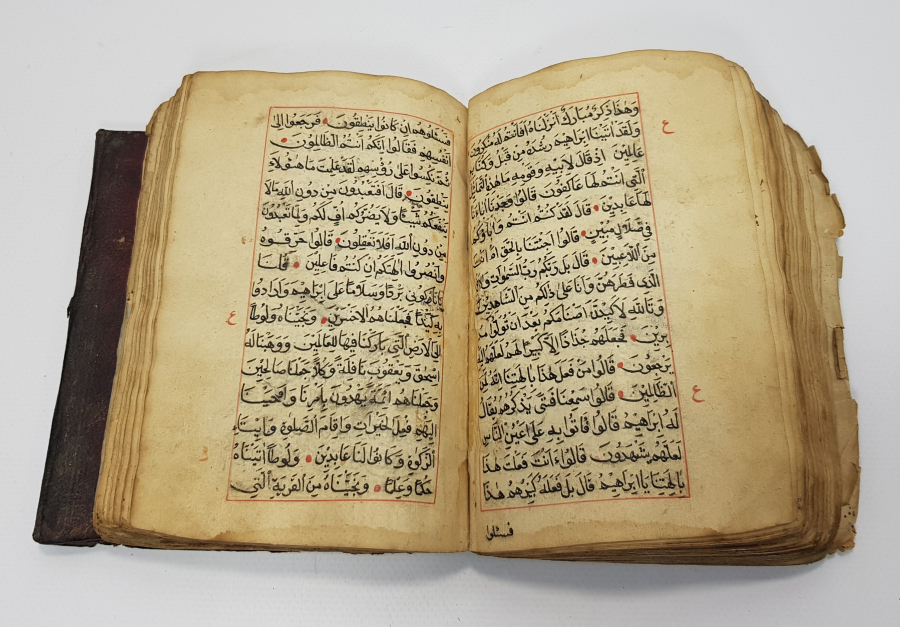 وَهٰذَا ذِكْرٌ مُبَارَكٌ أَنْزَلْنَاهُ أَفَأَنْتُمْ لَهُ مُنْكِرُونَ
ع
وَلَقَدْ اٰتَيْنَا اِبْرَاهِيمَ رُشْدَهُ مِنْ قَبْلُ وَكُنَّا
عَالِمِينَ اِذْ قَالَ لِاَبِيهِ وَقَوْمِهِ مَا هٰذِهِ
الَّتِي اَنْتُمْ لَهَا عَاكِفُونَ قَالُوا وَجَدْنَا اٰبَاءَنَا
لَهَا عَابِدِينَ قَالَ لَقَدْ كُنْتُمْ اَنْتُمْ وَاٰبَاؤُكُمْ
فِي ضَلَالٍ مُبِينٍ قَالُوا اَجِئْتَنَا بِالْحَقِّ اَمْ اَنْتَ
مِنَ اللَّاعِبِينَ قَالَ بَلْ رَبُّكُمْ رَبُّ السَّمٰوَاتِ
الَّذِي فَطَرَهُنَّ وَاَنَا عَلٰى ذٰلِكُمْ مِنَ الشَّاهِدِينَ
وَتَاللّٰهِ لَاَكِيدَنَّ اَصْنَامَكُمْ بَعْدَ اَنْ تُوَلُّوا مُدْ
بِرِينَ فَجَعَلَهُمْ جُذَاذًا اِلَّا كَبِيرًا لَهُمْ لَعَلَّهُمْ
يَرْجِعُونَ قَالُوا مَنْ فَعَلَ هٰذَا بِاٰلِهَتِنَا اِنَّهُ لَمِنَ
الظَّالِمِينَ قَالُوا سَمِعْنَا فَتًى يَذْكُرُهُمْ يُقَالُ
ع
لَهُ اِبْرَاهِيمُ قَالُوا فَأْتُوا بِهِ عَلٰى اَعْيُنِ النَّاسِ
لَعَلَّهُمْ يَشْهَدُونَ قَالُوا ءَاَنْتَ فَعَلْتَ هٰذَا
بِاٰلِهَتِنَا يَا اِبْرَاهِيمُ قَالَ بَلْ فَعَلَهُ كَبِيرُهُمْ هٰذَا
فسئلوا
فَسْئَلُوهُمْ اِنْ كَانُوا يَنْطِقُونَ فَرَجَعُوا اِلٰى
اَنْفُسِهِمْ فَقَالُوا اِنَّكُمْ اَنْتُمُ الظَّالِمُونَ
ثُمَّ نُكِسُوا عَلٰى رُؤُسِهِمْ لَقَدْ عَلِمْتَ مَا هٰؤُلَاءِ
يَنْطِقُونَ قَالَ اَفَتَعْبُدُونَ مِنْ دُونِ اللّٰهِ مَا لَا
يَنْفَعُكُمْ شَيْئًا وَلَا يَضُرُّكُمْ اُفٍّ لَكُمْ وَلِمَا تَعْبُدُونَ
مِنْ دُونِ اللّٰهِ اَفَلَا تَعْقِلُونَ قَالُوا حَرِّقُوهُ
وَانْصُرُوا اٰلِهَتَكُمْ اِنْ كُنْتُمْ فَاعِلِينَ قُلْنَا
يَا نَارُ كُونِي بَرْدًا وَسَلَامًا عَلٰى اِبْرَاهِيمَ وَاَرَادُوا
بِهِ كَيْدًا فَجَعَلْنَاهُمُ الْاَخْسَرِينَ وَنَجَّيْنَاهُ وَلُوطًا
ع
اِلَى الْاَرْضِ الَّتِي بَارَكْنَا فِيهَا لِلْعَالَمِينَ وَوَهَبْنَا لَهُ
اِسْحٰقَ وَيَعْقُوبَ نَافِلَةً وَكُلًّا جَعَلْنَا صَالِحِينَ
وَجَعَلْنَاهُمْ اَئِمَّةً يَهْدُونَ بِاَمْرِنَا وَاَوْحَيْنَا
اِلَيْهِمْ فِعْلَ الْخَيْرَاتِ وَاِقَامَ الصَّلٰوةِ وَاِيتَاءَ
الزَّكٰوةِ وَكَانُوا لَنَا عَابِدِينَ وَلُوطًا اٰتَيْنَاهُ
حُكْمًا وَعِلْمًا وَنَجَّيْنَاهُ مِنَ الْقَرْيَةِ الَّتِي